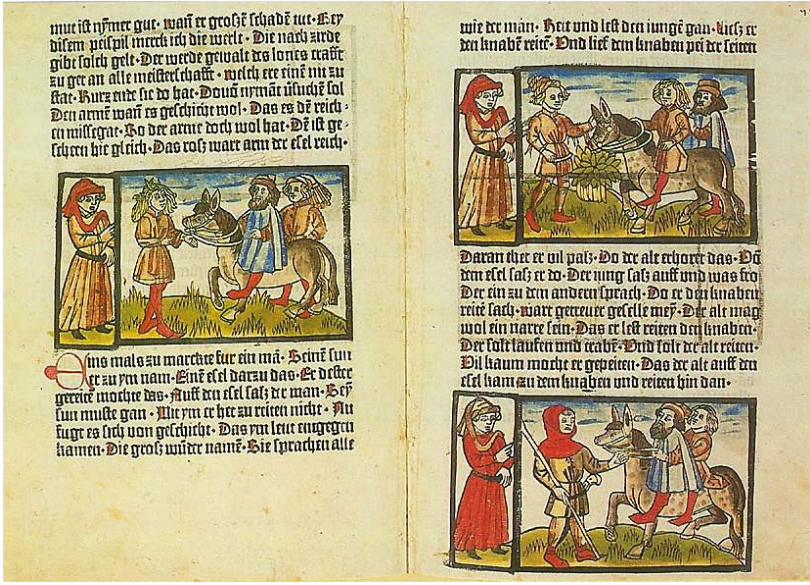 mut ist nÿmer gut · wañ er groſʒē ſchadē tut · Beÿ
diſem peiſpil merck ich die werlt · Die nach zirde
gibt ſolch gelt · Der werde gewalt des lones crafft
zu get an alle meiſterſchafft · welch ere einē mi zu
ſtat · Kurz ende ſie do hat · nÿmāt ſol
Den armē wañ es geſchicht wol · Das es dē reich-
en miſſegat · So der arme doch wol hat · Dē iſt ge-
ſcheen hie gleich · Das roſʒ ware arm der eſel reich ·
Eins mals zu marckte fur ein mā · Seinē ſun
er zu ym nam · Einē eſel darzu das · Er deſter
gereitē mochte das · Auff den eſel ſaſʒ der man · Seÿ
ſun muſte gan · Mit ym er het zu reiten nicht · Nu
fugt es ſich von geſchicht · Das ym leut entgegen
kamen · Die groſʒ wūder namē · Sie ſprachen alle
wie der man · Reit und leſt den iungē gan · lieſʒ er
den knabē reitē · Vnd lief dem knaben pei der ſeiten
Daran thet er vil paſʒ · Do der alt erhoret das · Vō
dem eſel ſaſʒ er do · Der iung ſaſʒ auff vnd was fro
Der ein zu dem andern ſprach · Do er den knaben
reitē ſach · ware getreuer geſelle meÿ · Der alt mag
wol ein narre ſein · Das er leſt reiten den knaben ·
Der ſolt lauffen und trabē · Vnd ſolt der alt reiten ·
Vil kaum mochte er gepeiten · Das der alt auff den
eſel kam zu dem knaben vnd reiten hin dan ·